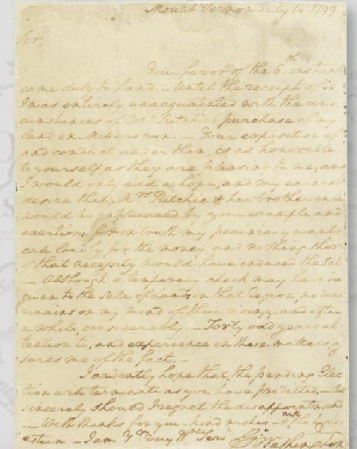 Mount Vernon July 14 1799
Sir
Your favor of the 6th instant
came duly to hand. – Until the receipt of it
I was entirely unacquainted with the cir-
cumstances of purchase of my
land on run. – Your exposition of
and conduct under them, is as honorable
to yourself as they are pleasing to me, and
I would only add a hope, and my earnest
desire that, Mr & her brother in law
would be influenced by your example and
exertion, for in truth my pecuniary wants
call loudly for the money and nothing short
of that necessity would have induced the Sale
– Although a temporary check may have been
given to the sale of lands in that region, no doubt
remains on my mind of their rising, and after
a while, considerably. – Forty odd years at-
tention to, and experience in these matters, as-
sures me of the fact. –
I ardently hope that the pending Elec-
tion will terminate as you have predicted – Most
sincerely should I regret the disappointment
– With thanks for your kind wishes & Much
esteem – I am Yr Very Hble Serv
Go Washington